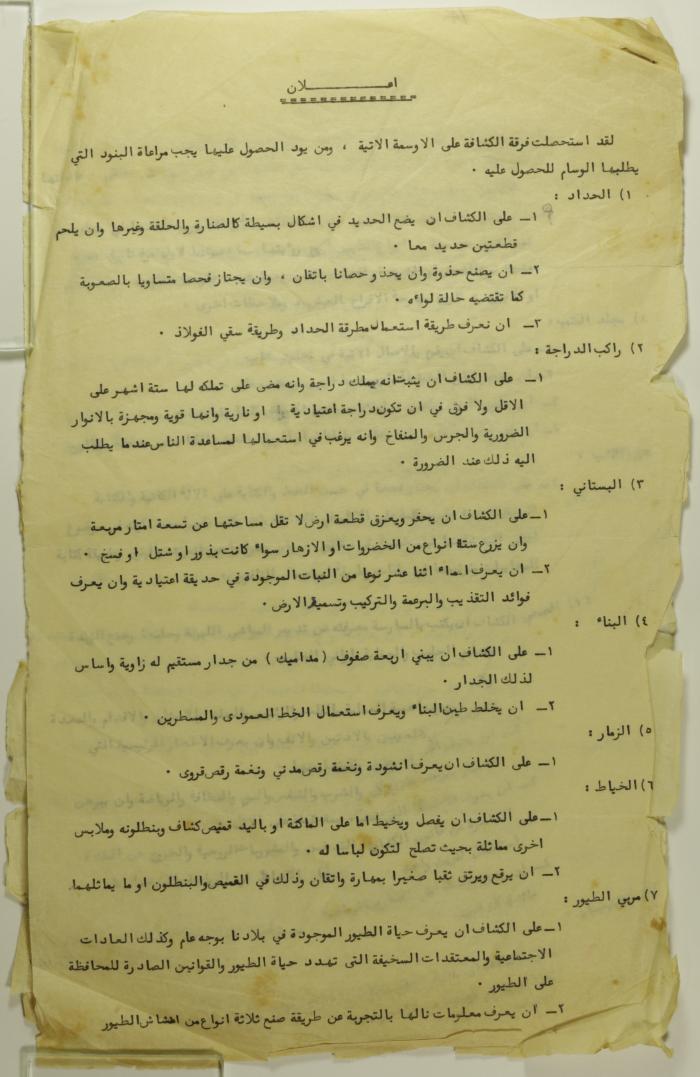 اعـــــــــلان
لقد استحصلت فرقة الكشافة على الاوسمة الاتية ، ومن يود الحصول عليها يجب مراعاة البنود التي
يطلبها الوسام للحصول عليه .
١) الحداد :
١ــ على الكشاف ان يضع الحديد في اشكال بسيطة كالصنارة والحلقة وغيرها وان يلحم
قطعتين حديد معا .
٢ــ ان يصنع حذوة وان يحذو حصانا باتقان ، وان يجتاز فحصا متساويا بالصعوبة
كما تقتضيه حالة لوائه .
٣ــ ان نعرف طريقة استعمال مطرقة الحداد وطريقة سقي الفولاذ .
٢) راكب الدراجة :
١ــ على الكشاف ان يثبت انه يملك دراجة وانه مضى على تملكه لها ستة اشهر على
الاقل ولا فرق في ان تكون دراجة اعتيادية او نارية وانها قوية ومجهزة بالانوار
الضرورية والجرس والمنفاخ وانه يرغب في استعمالها لمساعدة الناس عندما يطلب
اليه ذلك عند الضرورة .
٣) البستاني :
١ــ على الكشاف ان يحفر ويعزق قطعة ارض لا تقل مساحتها عن تسعة امتار مربعة
وان يزرع ستة انواع من الخضروات او الازهار سواء كانت بذور او شتل او فسخ .
٢ــ ان يعرف اسماء اثنا عشر نوعا من النبات الموجودة في حديقة اعتيادية وان يعرف
فوائد التقذيب والبرعمة والتركيب وتسميد الارض .
٤) البناء :
١ــ على الكشاف ان يبني اربعة صفوف (مداميك) من جدار مستقيم له زاوية واساس
لذلك الجدار .
٢ــ ان يخلط طين البناء ويعرف استعمال الخط العمودى والمسطرين .
٥) الزمار :
١ــ على الكشاف ان يعرف انشودة ونغمة رقص مدني ونغمة رقص قروى .
٦) الخياط :
١ــ على الكشاف ان يفصل ويخيط اما على الماكنة او باليد قميص كشاف وبنطلونه وملابس
اخرى مماثلة بحيث تصلح لتكون لباسا له .
٢ــ ان يرقع ويرتق ثقبا صغيرا بمهارة واتقان وذلك في القميص والبنطلون او ما يماثلهما.
٧) مربي الطيور :
١ــ على الكشاف ان يعرف حياة الطيور الموجودة في بلادنا بوجه عام وكذلك العادات
الاجتماعية والمعتقدات السخيفة التى تهدد حياة الطيور والقوانين الصادرة للمحافظة
على الطيور .
٢ــ ان يعرف معلومات نالها بالتجربة عن طريقة صنع ثلاثة انواع من اعشاش الطيور